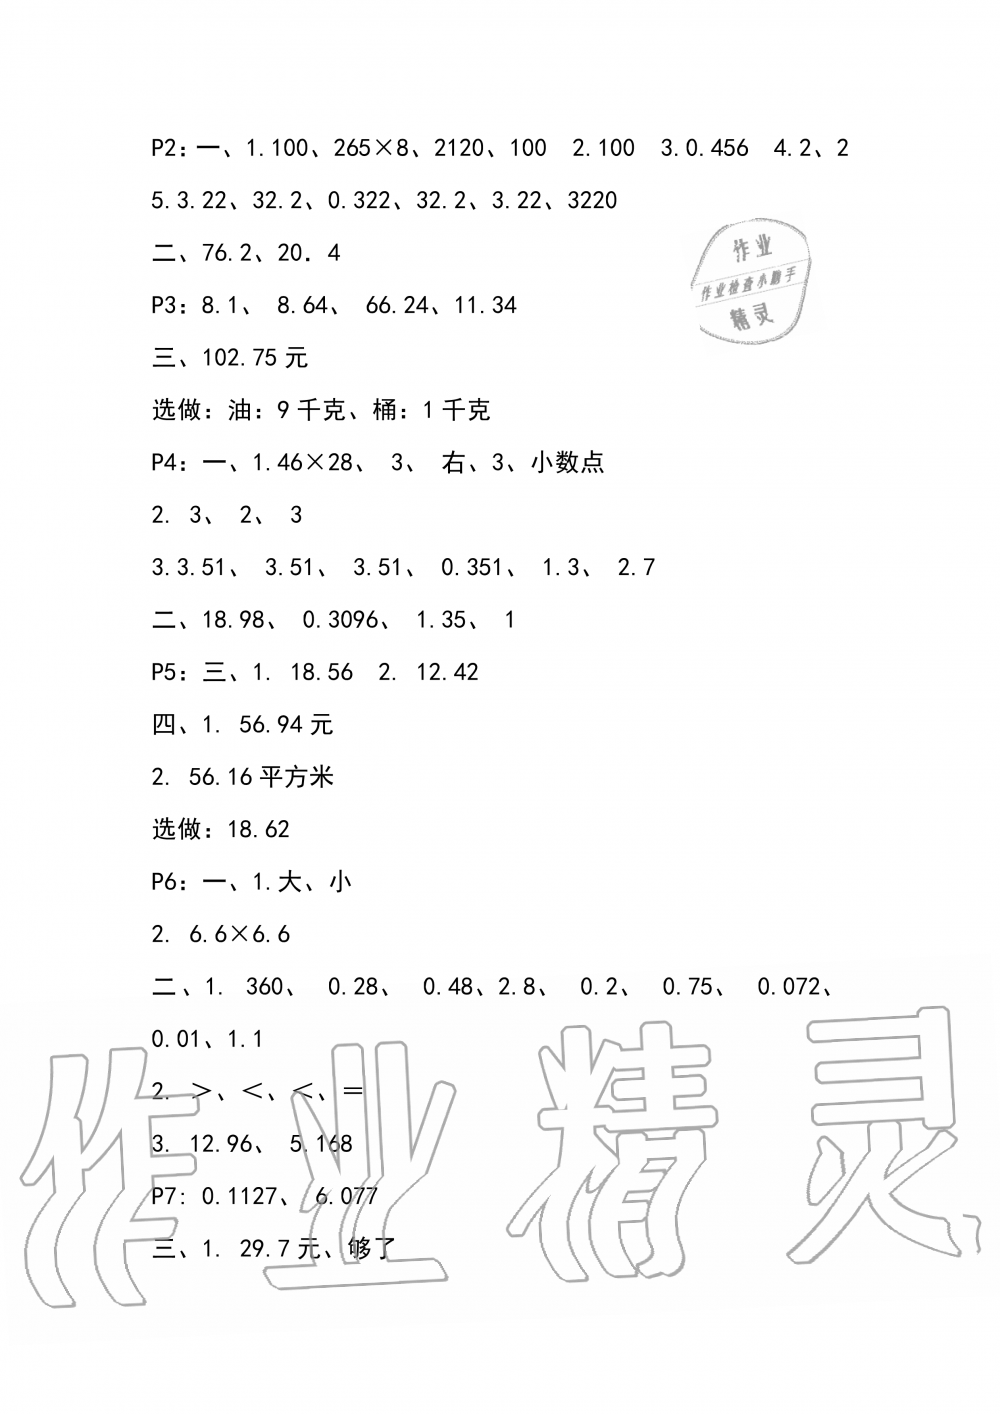 P2：一、1.100、265×8、2120、100  2.100  3.0.456  4.2、2
5.3.22、32.2、0.322、32.2、3.22、3220
二、76.2、20．4
作业
作业检查小助手
精灵
P3：8.1、 8.64、 66.24、11.34
三、102.75 元
选做：油：9 千克、桶：1 千克
P4：一、1.46×28、 3、 右、3、小数点
2. 3、 2、 3
3.3.51、 3.51、 3.51、 0.351、 1.3、 2.7
二、18.98、 0.3096、 1.35、 1
P5：三、1. 18.56  2. 12.42
四、1. 56.94 元
2. 56.16 平方米
选做：18.62
P6：一、1.大、小
2. 6.6×6.6
二、1. 360、 0.28、 0.48、2.8、 0.2、 0.75、 0.072、
0.01、1.1
2. ＞、＜、＜、＝
3. 12.96、 5.168
P7: 0.1127、 6.077
三、1. 29.7 元、够了
作业精灵